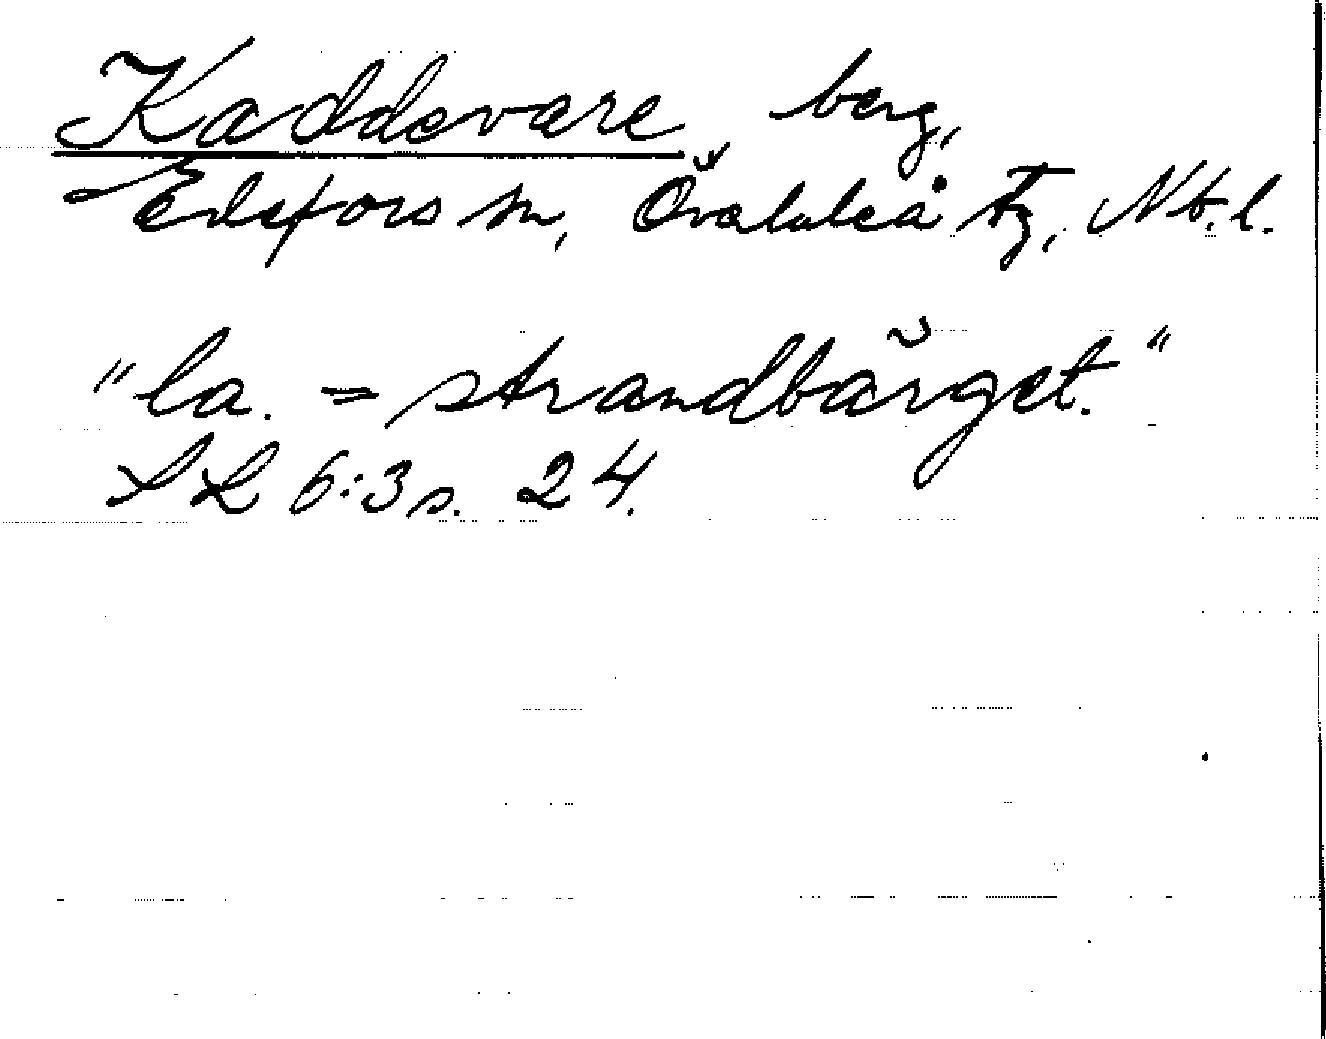 Kaddevare berg,
Edefors sn, Överluleå tg, Nb.l.
"la. = strandbärget."
SL 6:3 s. 24.